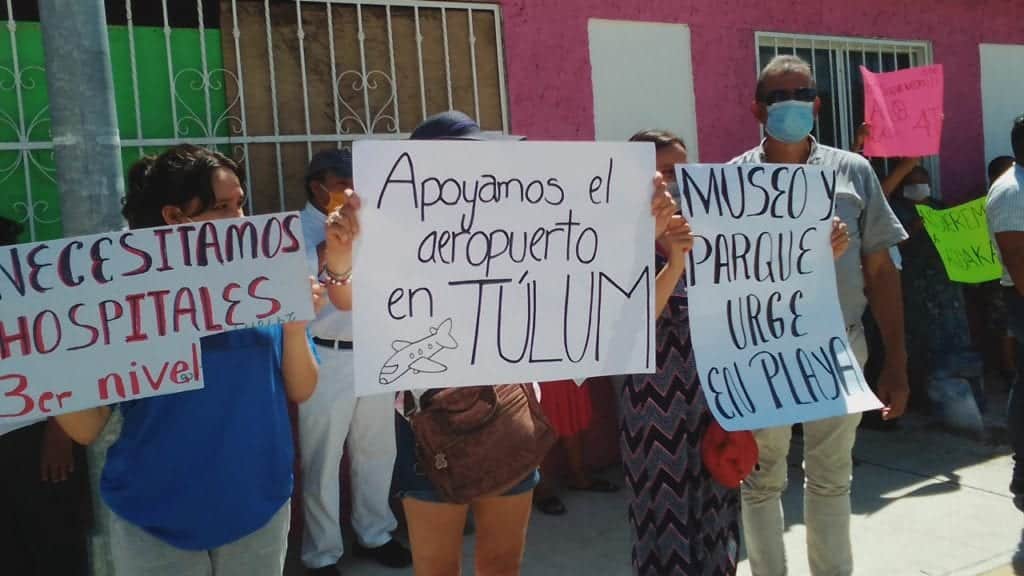 NECESITAMOS
HOSPITALES
3er nivel
Apoyamos el
aeropuerto
en TÚLUM
MUSEO Y
PARQUE
URGE
EN PLAYA